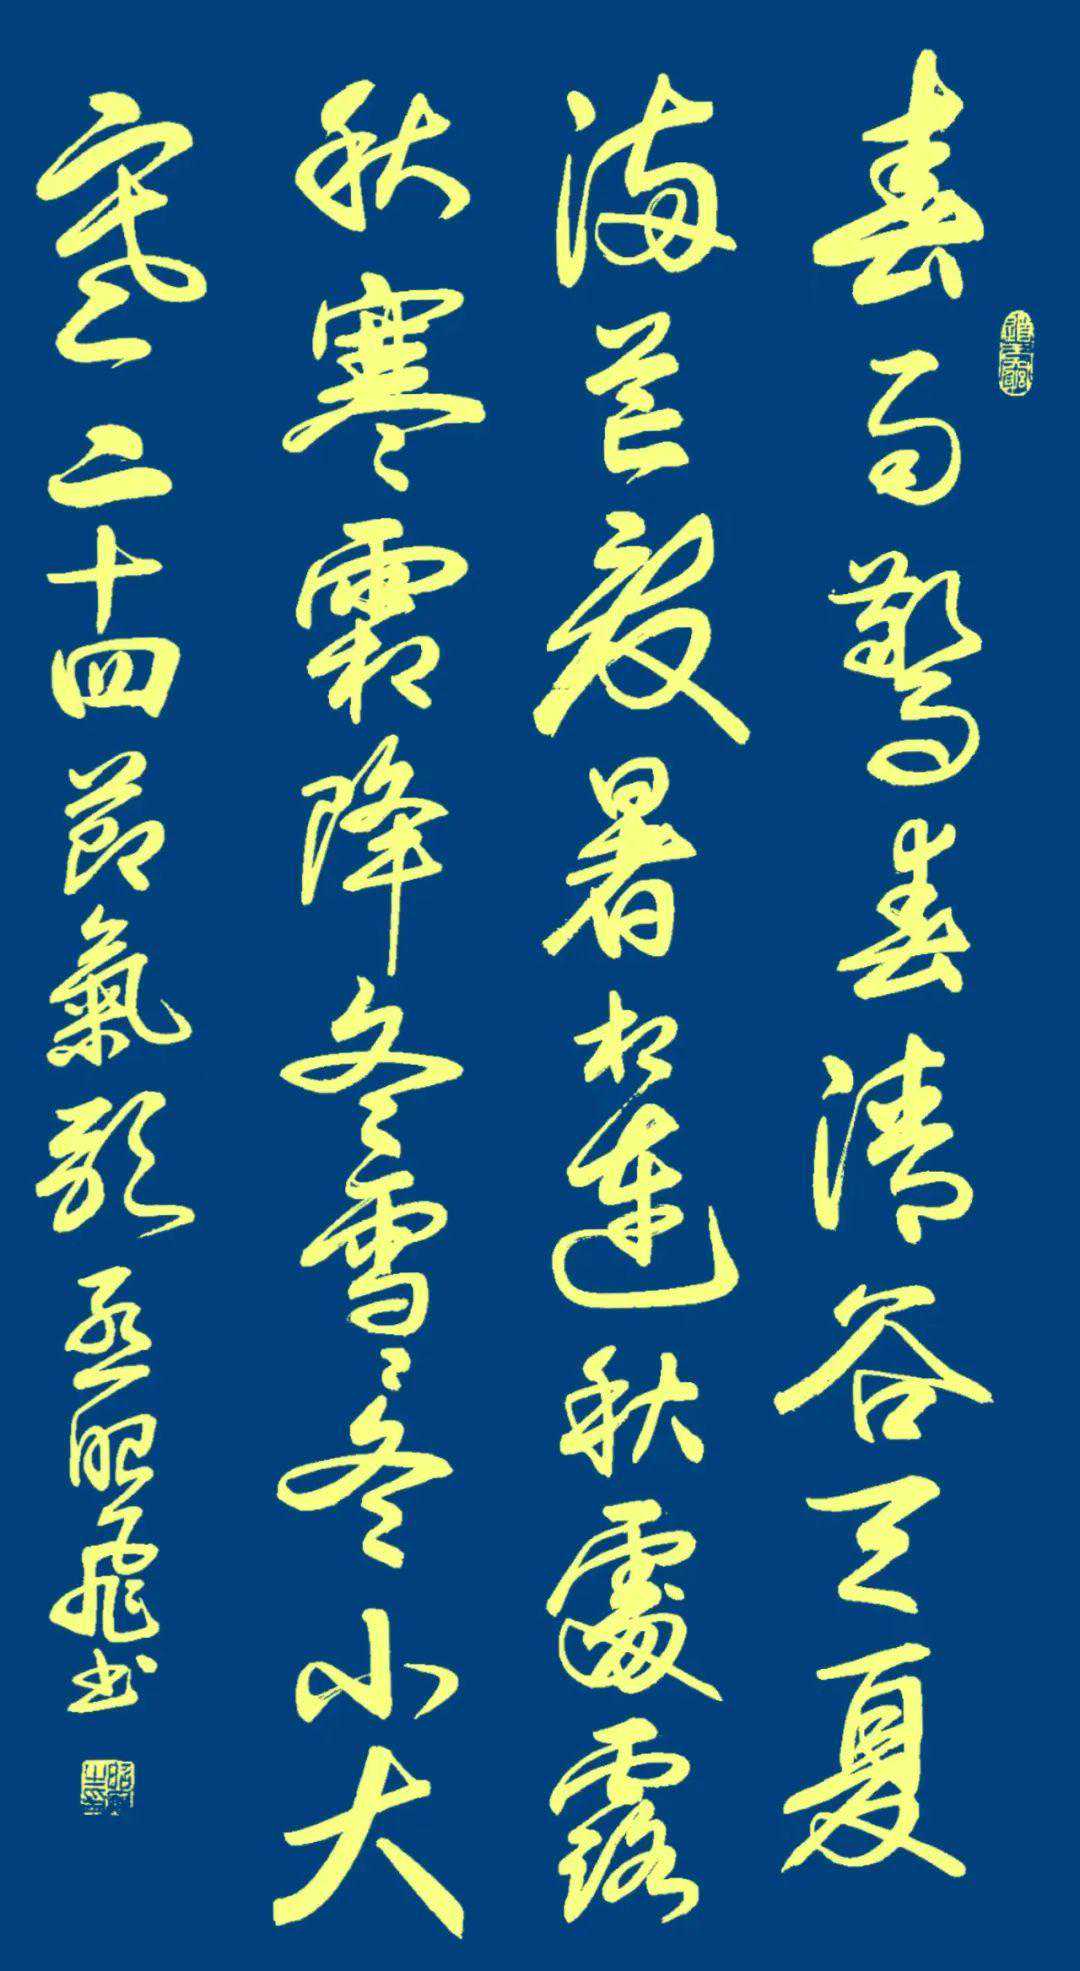 春雨驚春清谷天夏
满芒夏暑相連秋處露
秋寒霜降冬雪〻冬小大
寒二十四節氣歌 孟昭飛书